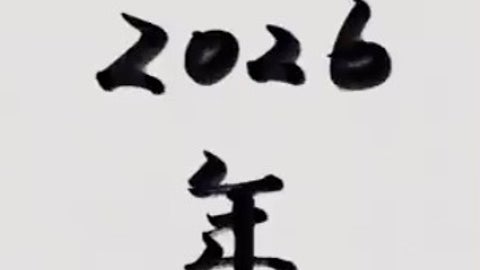 2026
年